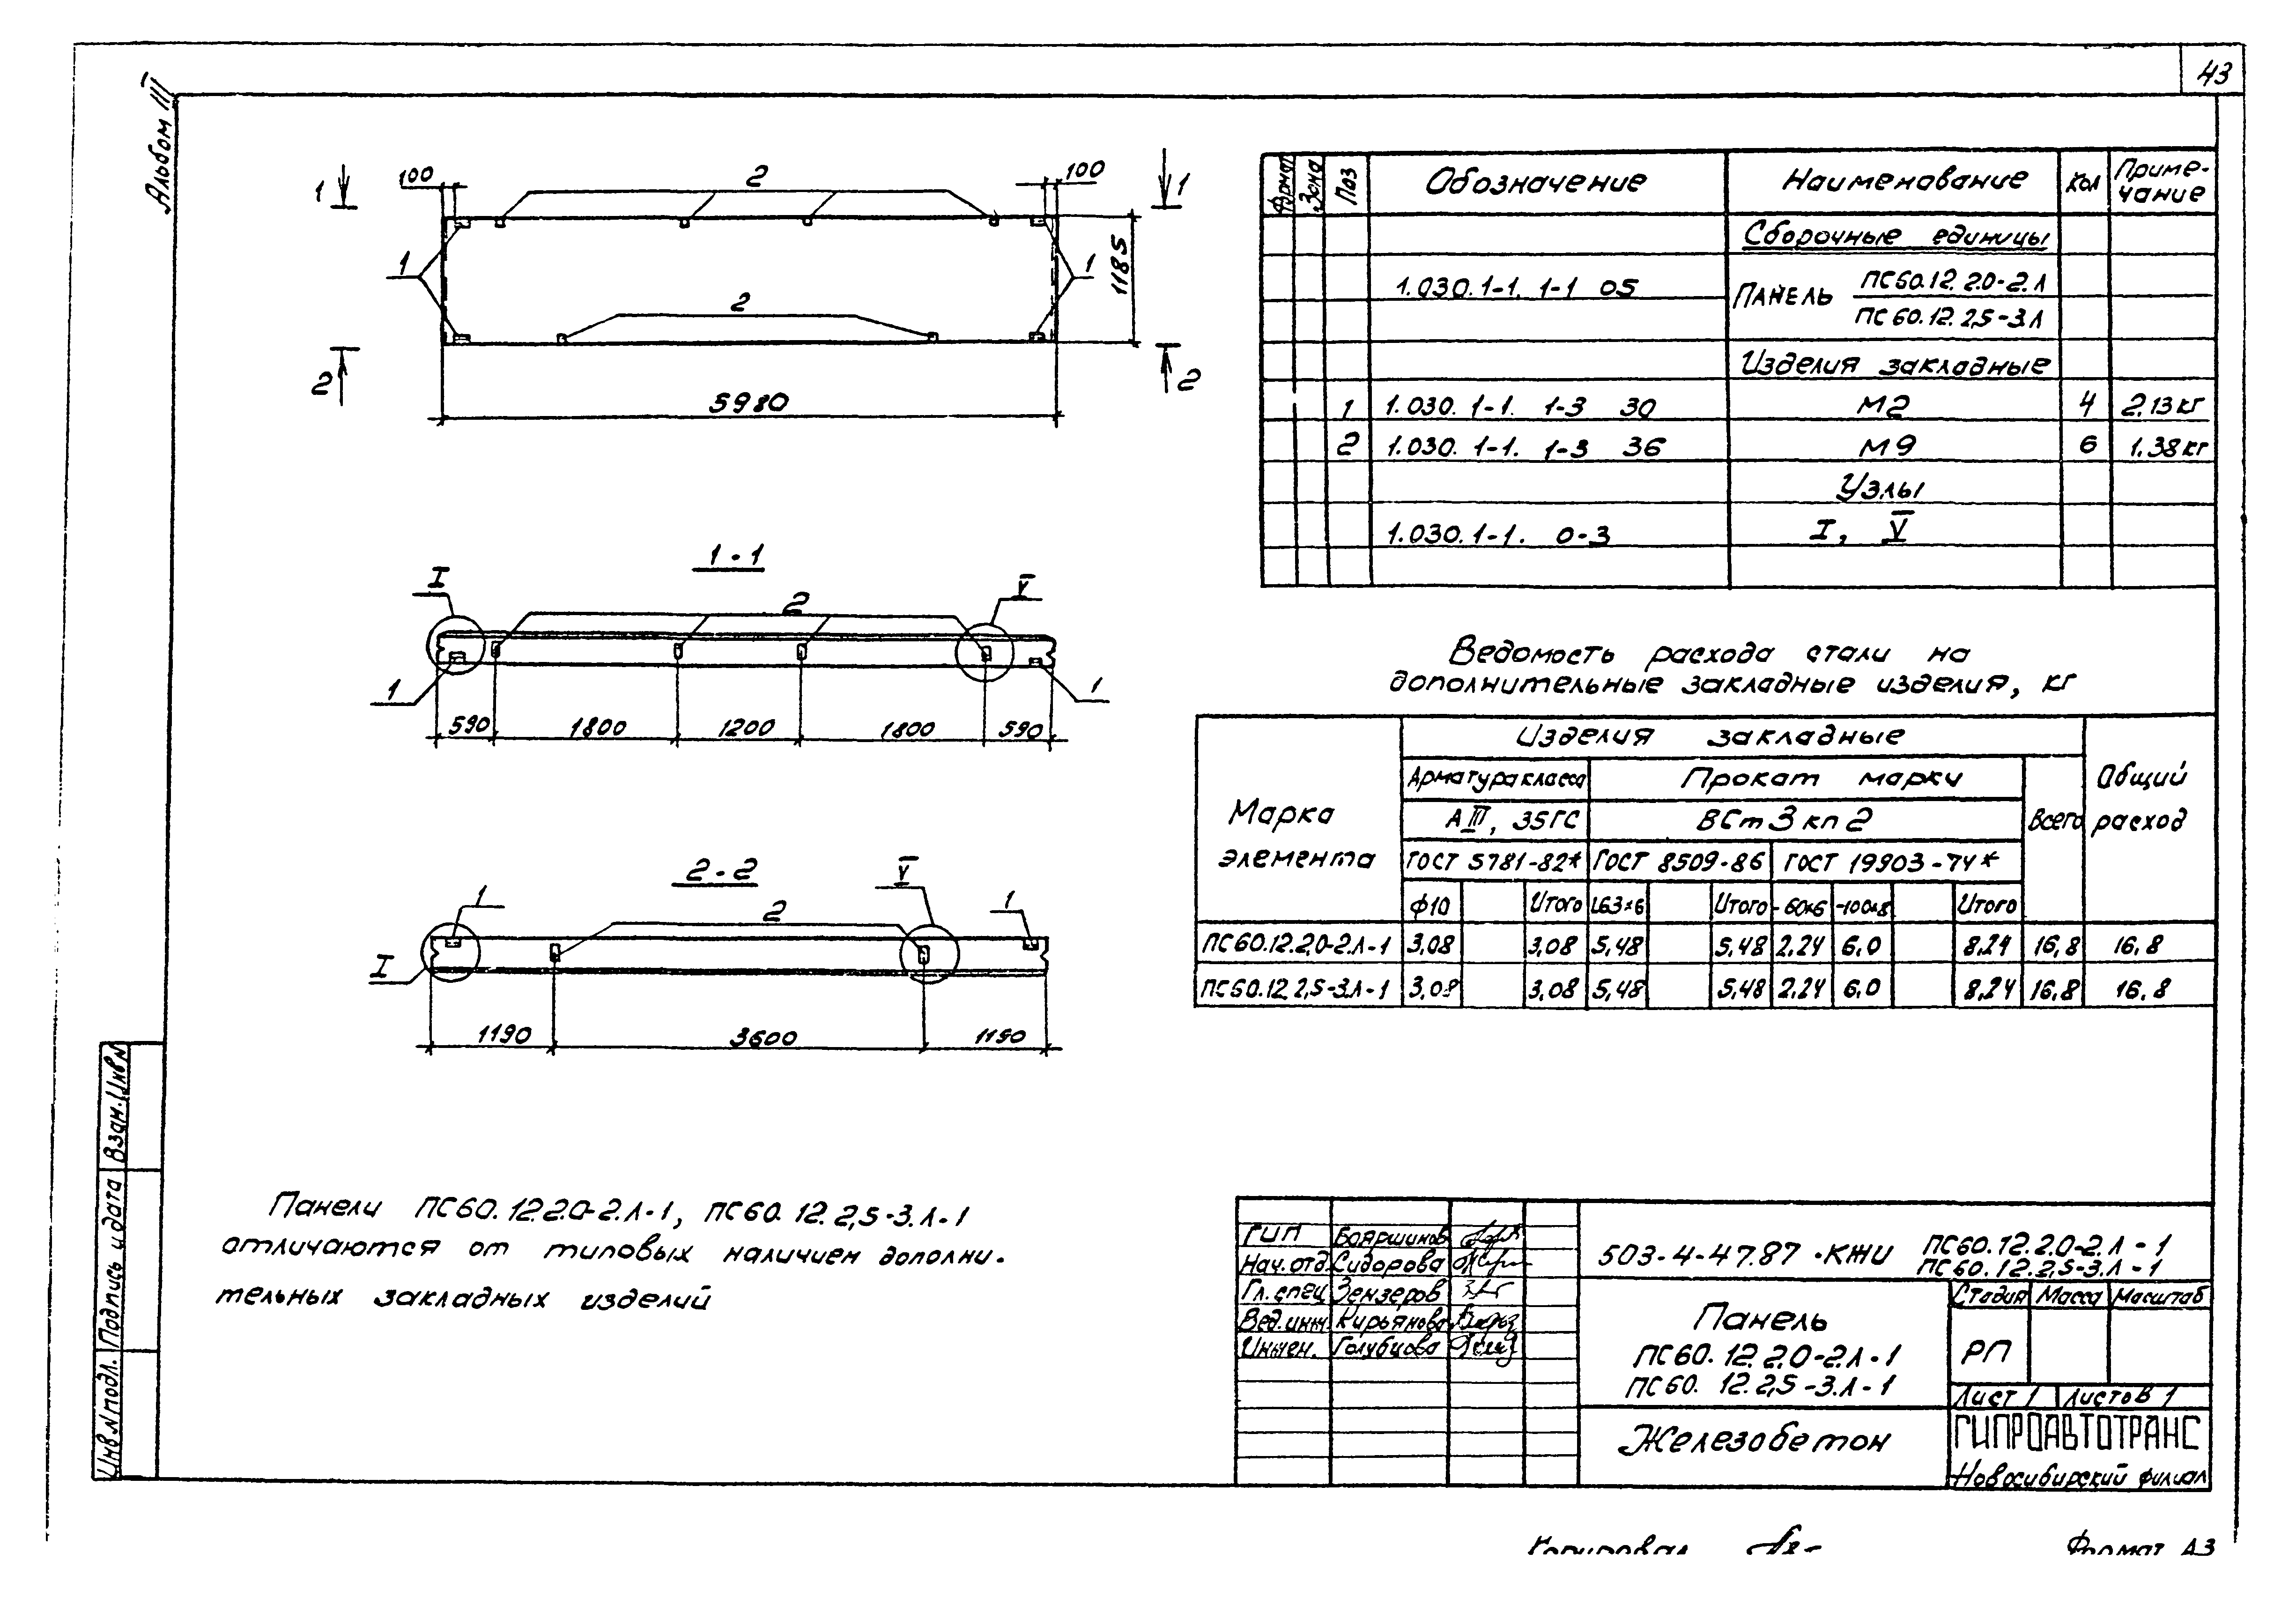 43
Альбом III
1
100
2
100
1
1
1
1185
2
2
2
5980
1-1
I
2
V
1
1
590
1800
1200
1800
590
2-2
1
V
2
1
I
1190
3600
1190
Панели ПС60.12.2.0-2.Л-1, ПС60.12.2,5-3.Л-1
отличаются от типовых наличием дополни-
тельных закладных изделий
Формат Зона Поз Обозначение Наименование Кол Приме-
чание
Сборочные единицы
1.030.1-1. 1-1 05 Панель ПС60.12.2.0-2.Л
ПС60.12.2,5-3.Л
Изделия закладные
1 1.030.1-1. 1-3 30 М2 4 2,13кг
2 1.030.1-1. 1-3 36 М9 6 1.38кг
Узлы
1.030.1-1. 0-3 I, V
Ведомость расхода стали на
дополнительные закладные изделия, кг
Марка элемента Изделия закладные Общий расход
Арматура класса Прокат марки Всего
АIII, 35ГС ВСт3кп2
ГОСТ 5781-82* ГОСТ 8509-86 ГОСТ 19903-74*
ф10 Итого L63×6 Итого -60×6 -100×8 Итого
ПС60.12.2,0-2.Л-1 3,08 3,08 5,48 5,48 2,24 6,0 8,24 16,8 16,8
ПС60.12.2,5-3.Л-1 3,08 3,08 5,48 5,48 2,24 6,0 8,24 16,8 16,8
Взам.Инв№
Подпись и дата
Инв.№подл.
ГИП Бояршинов
Нач.отд. Сидорова
Гл.спец Зензеров
Вед.инж. Кирьянова
Инжен. Голубцова
503-4-47.87 -КЖИ ПС60.12.2.0-2.Л-1
ПС60.12.2,5-3.Л-1
Панель
ПС60.12.2.0-2.Л-1
ПС60.12.2,5-3.Л-1
Стадия Масса Масштаб
РП
Лист 1 Листов 1
Железобетон
ГИПРОАВТОТРАНС
Новосибирский филиал
Копировал
Формат А3